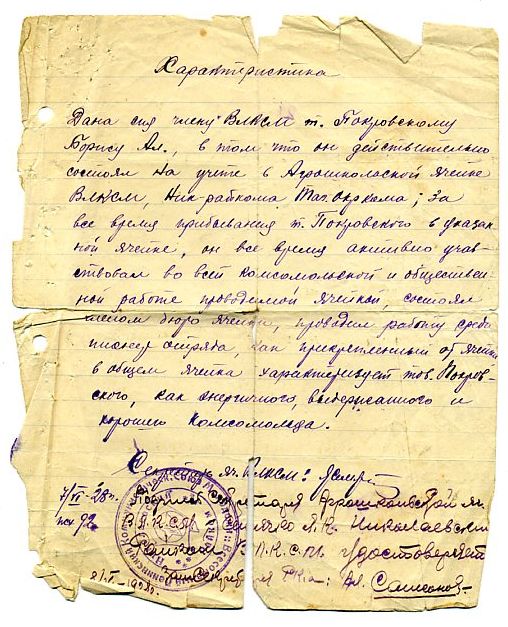 Характеристика
Дана сия члену ВЛКСМ т. Покровскому
Борису Ал., в том что он действительно
состоял на учете в Агрошкольской ячейке
ВЛКСМ, Ник-райкома Таг.окркома; За
все время прибывания т. Покровского в указан
ной ячейке, он все время активно учав-
ствовал во всей комсомольской и обществен-
ной работе проводимой ячейкой, состоял
членом бюро ячейки, проводил работу среди
пионер отряда, как прикрепленный от ячейки
в общем ячейка характеризует тов. Покров-
ского, как энергичного, выдержанного и
хорошего Комсомольца.
Секретарь яч. ВЛКСМ:
7/VI-28г.
№ 92
Подпись Секретаря Агрошкольской яч.
В.Л.К.С.М. Николаевский
Райком В.Л.К.С.М. удостоверяет
21.VI-1928г.
Секретаря РК-а: Самсонов